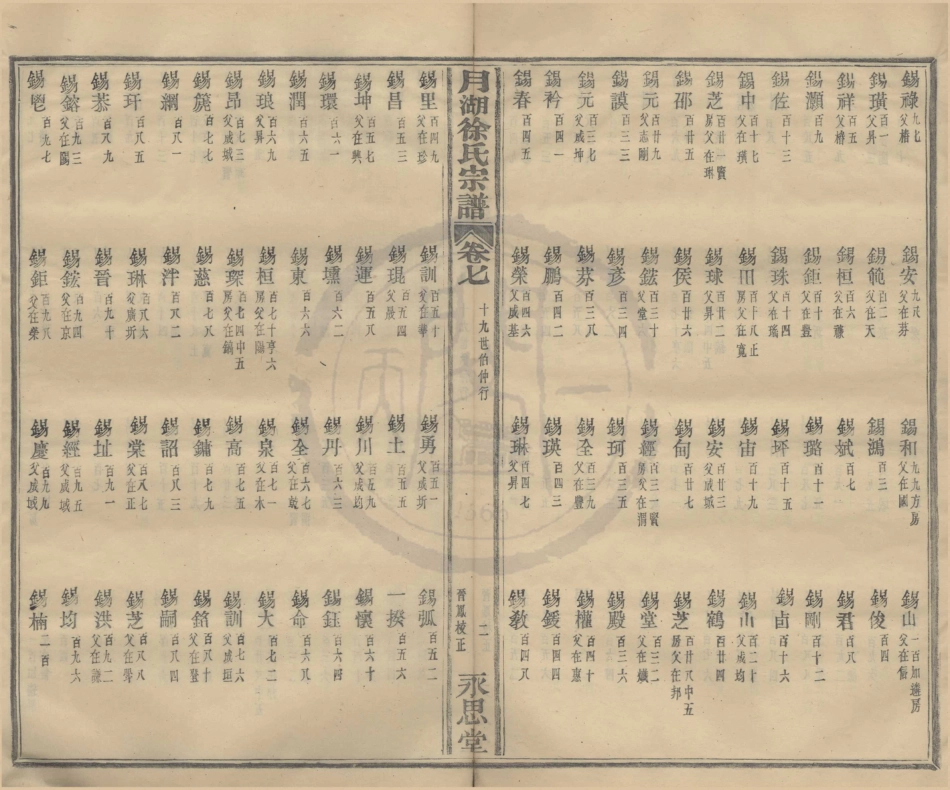 錫祿 九七 父樁
錫安 九八 父在芬
錫和 九九方房 父在國
錫山 一百加遶房 父在儒
錫璜 百一 父昇
錫範 百二 父在天
錫鴻 百三
錫俊 百四
錫祥 百五 父樁
錫桓 百六 父在藤
錫斌 百七
錫君 百八
錫灝 百九
錫鉅 百十 父在豊
錫璐 百十一
錫剛 百十二
錫佐 百十三
錫珠 百十四 父在瑞
錫坪 百十五
錫卣 百十六
錫中 百十七 父在琪
錫田 百十八正 房父在寬
錫宙 百十九
錫山 百二十 父成均
錫芝 百廿一賢 房父在琳
錫球 百廿二 父昇
錫安 百廿三 父成珹
錫鶴 百廿四
錫邵 百廿五
錫侯 百廿六
錫甸 百廿七
錫芝 百廿八中五 房父在邦
錫元 百廿九 父志剛
錫鉉 百三十 父堂
錫經 百三一賢 房父在渭
錫堂 百三二 父在熾
錫謨 百三三
錫彥 百三四
錫珂 百三五
錫殿 百三六
錫元 百三七 父成坤
錫芬 百三八
錫全 百三九 父在豐
錫權 百四十 父在惠
錫衿 百四一
錫鵬 百四二
錫瑛 百四三
錫鍰 百四四
錫春 百四五
錫榮 百四六 父成基
錫琳 百四七 父昇
錫教 百四八
月湖徐氏宗譜 卷七 十九世伯仲行 二 晉鳳校正 永思堂
錫里 百四九 父在珍
錫訓 百五十 父在華
錫勇 百五一 父成圻
錫弧 百五二
錫昌 百五三
錫琨 百五四 父殷
錫土 百五五
一揆 百五六
錫坤 百五七 父在興
錫運 百五八
錫川 百五九 父成均
錫懷 百六十
錫環 百六一
錫壎 百六二
錫丹 百六三
錫鈺 百六四
錫潤 百六五
錫東 百六六
錫全 百六七 父在乾
錫命 百六八
錫琅 百六九 父昇
錫桓 百七十亨六 房父在陽
錫泉 百七一 父在木
錫大 百七二
錫昂 百七三 父成城
錫琛 百七四中五 房父在鎬
錫高 百七五
錫訓 百七六 父成垣
錫巍 百七七
錫慈 百七八
錫鏞 百七九
錫銘 百八十 父在登
錫綱 百八一
錫泮 百八二
錫詔 百八三
錫嗣 百八四
錫玕 百八五
錫琳 百八六 父廣圻
錫棠 百八七 父在正
錫芝 百八八 父在榮
錫恭 百八九
錫晉 百九十
錫址 百九一
錫洪 百九二 父在謙
錫鎔 百九三 父在陽
錫鉉 百九四 父在京
錫經 百九五 父成城
錫均 百九六
錫恩 百九七
錫鉅 百九八 父在榮
錫慶 百九九 父成城
錫楠 二百